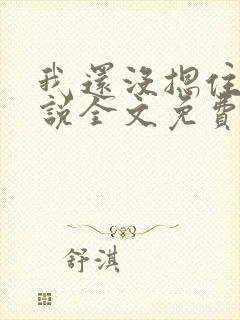 我還沒摁住
說全文免費
舒淇